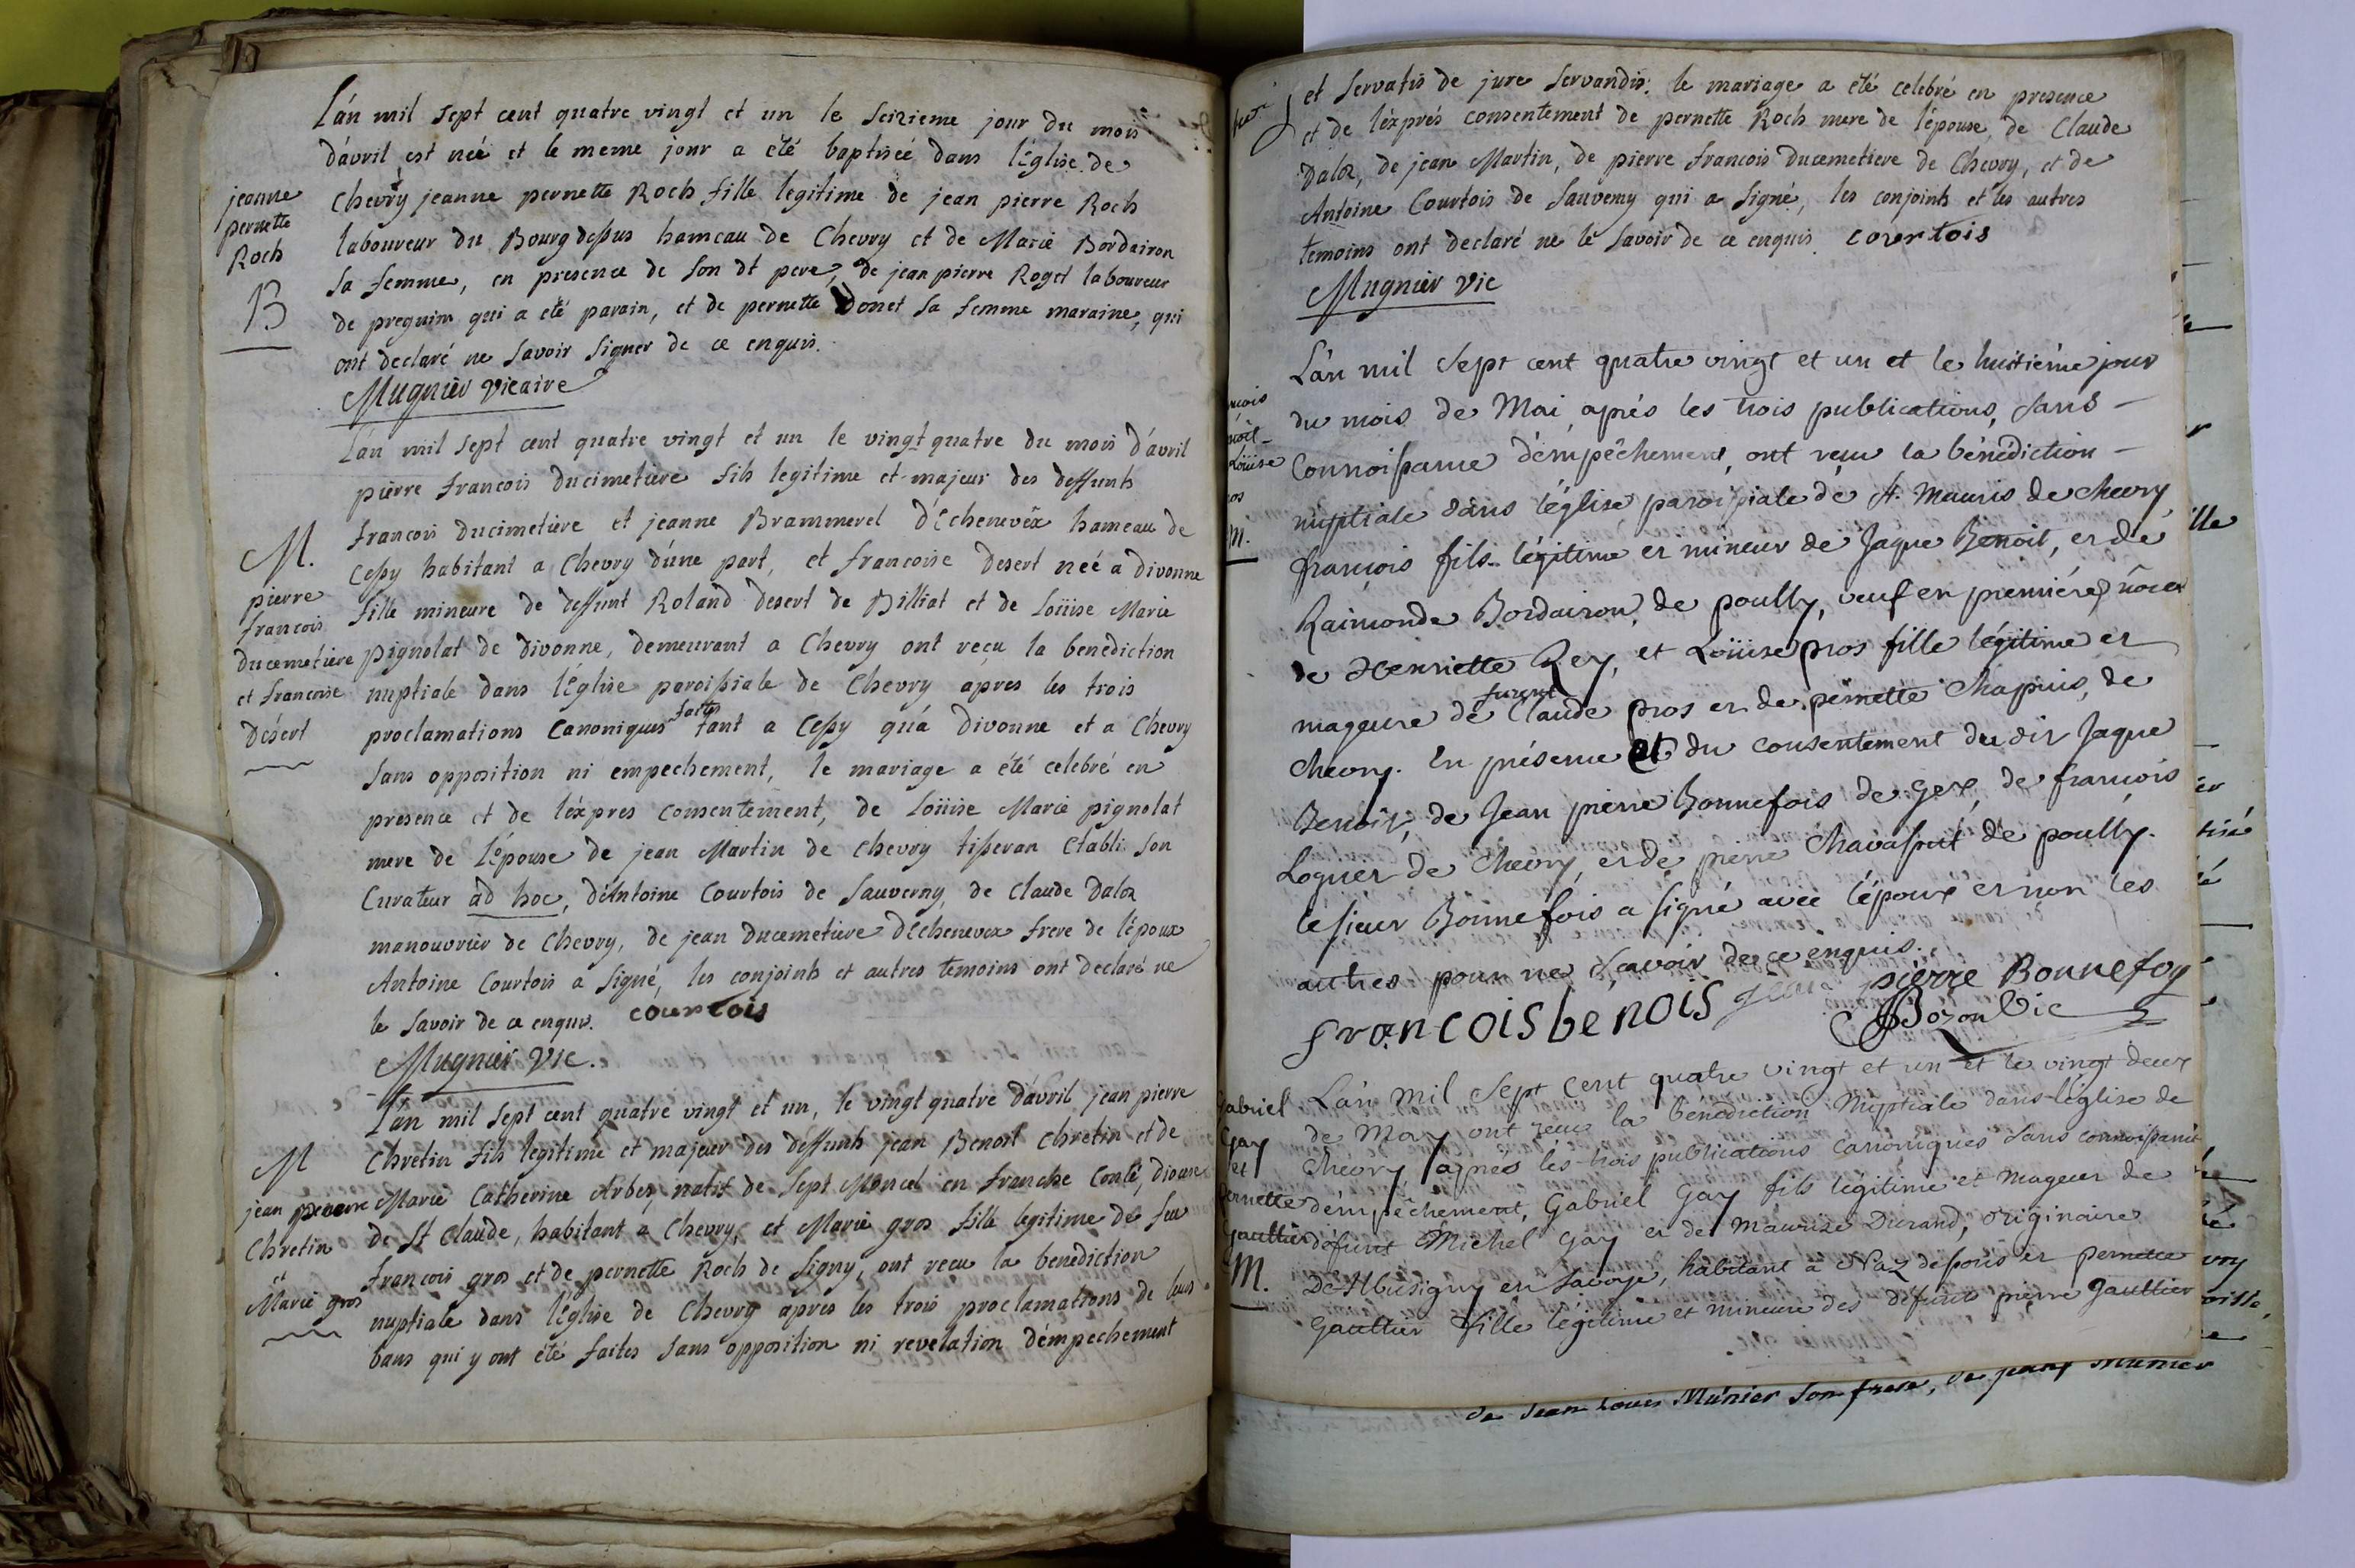 L'an mil sept cent quatre vingt et un le seizieme jour du mois
d'avril est neé et le meme jour a été baptiseé dans l'Église de
jeanne pernette Roch
B
Chevry jeanne pernette Roch fille legitime de jean pierre Roch
laboureur du Bourg dessus hameau de Chevry et de Marie Bordairon
sa femme, en presence de son dt pere, de jean pierre Roget laboureur
de preguim qui a été parain, et de pernette Donet sa femme maraine, qui
ont declaré ne savoir signer de ce enquis.
Mugnier vicaire
L'an mil sept cent quatre vingt et un le vingt quatre du mois d'avril
pierre francois ducimetiere fils legitime et majeur des deffunts
M.
pierre
francois
ducemetiere
et francoise
Désert
francois ducimetiere et jeanne Brammerel d'Echenevex hameau de
Cessy habitant a Chevry d'une part, et francoise desert neé a divonne
fille mineure de deffunt Roland desert de Billiat et de Loüise Marie
pignolat de divonne, demeurant a Chevry ont reçu la benediction
nuptiale dans l'Église paroissiale de Chevry apres les trois
proclamations canoniques faites tant a Cessy qu'a Divonne et a Chevry
sans opposition ni empechement, le mariage a été celebré en
presence et de l'éxpres consentement, de Loüise Marie pignolat
mere de l'épouse de jean Martin de Chevry tisseran établi son
Curateur ad hoc, d'Antoine Courtois de Sauverny, de Claude Daloz
manouvrier de Chevry, de jean ducemetiere d'Echenevex frere de l'époux
Antoine Courtois a signé, les conjoints et autres temoins ont declaré ne
le savoir de ce enquis. courtois
Mugnier vic.
L'an mil sept cent quatre vingt et un, le vingt quatre d'avril jean pierre
M
jean pierre
Chretin
et
Marie gros
Chretin fils legitime et majeur des deffunts jean Benoit Chretin et de
Marie Catherine Arbez, natif de Sept Moncel en franche Conté, diocese
de St Claude, habitant a Chevry, et Marie gros fille legitime de feu
francois gros et de pernette Roch de Signy, ont recu la benediction
nuptiale dans l'Église de Chevry apres les trois proclamations de leurs
bans qui y ont été faites sans opposition ni revelation d'émpechement
et servatis de jure servandis. le mariage a été celebré en presence
et de l'éxprés consentement de pernette Roch mere de l'épouse, de Claude
Daloz, de jean Martin, de pierre francois ducemetiere de Chevry, et de
Antoine Courtois de Sauverny qui a signé, les conjoints et les autres
temoins ont declaré ne le savoir de ce enquis. courtois
Mugnier vic
L'an mil sept cent quatre vingt et un et le huitiéme jour
du mois de Mai, aprés les trois publications, sans
connoissance d'empêchement, ont reçu la bénédiction
nuptiale dans l'église paroissiale de st. Mauris de chevry,
françois fils légitime et mineur de Jaque Benoit, et de
Raimonde Bordairon, de poully, veuf en premiéres nôces
de Henriette Rey, et Loüise gros fille légitime et
mageure de furent Claude gros et de pernette Chapuis, de
chevry. En présence et du consentement du dit Jaque
Benoit, de Jean pierre Bonnefois de gex, de françois
Loguer de Chevry, et de pierre Chavassut de poully.
le sieur Bonnefois a signé avec l'époux et non les
autres pour ne sçavoir de ce enquis.
francois benois jean pierre Bonnefoy
Bozon Vic
Gabriel
Gay
et
pernette
Gaultier
M.
L'an mil sept cent quatre vingt et un et le vingt deux
de May ont reçu la bénédiction Nuptiale dans l'église de
chevry, aprés les trois publications canoniques sans connoissance
d'empêchement, Gabriel Gay fils légitime et mageur de
défunt Michel Gay et de Maurize Durand, originaire
de Musigny en Savoye, habitant à Naz dessous et pernette
Gaultier fille légitime et mineure des défunts pierre Gaultier
de Jean Louis Munier son frere, de